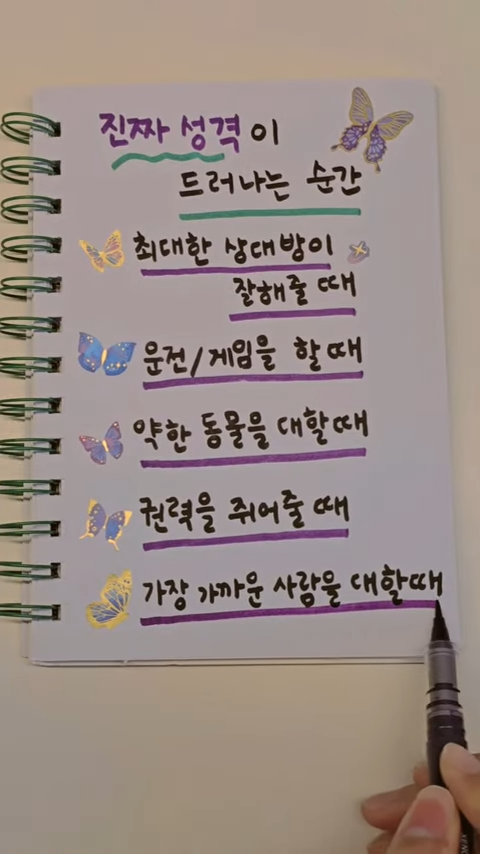 진짜 성격이
드러나는 순간
최대한 상대방이
잘해줄 때
운전/게임을 할 때
약한 동물을 대할 때
권력을 쥐어줄 때
가장 가까운 사람을 대할때